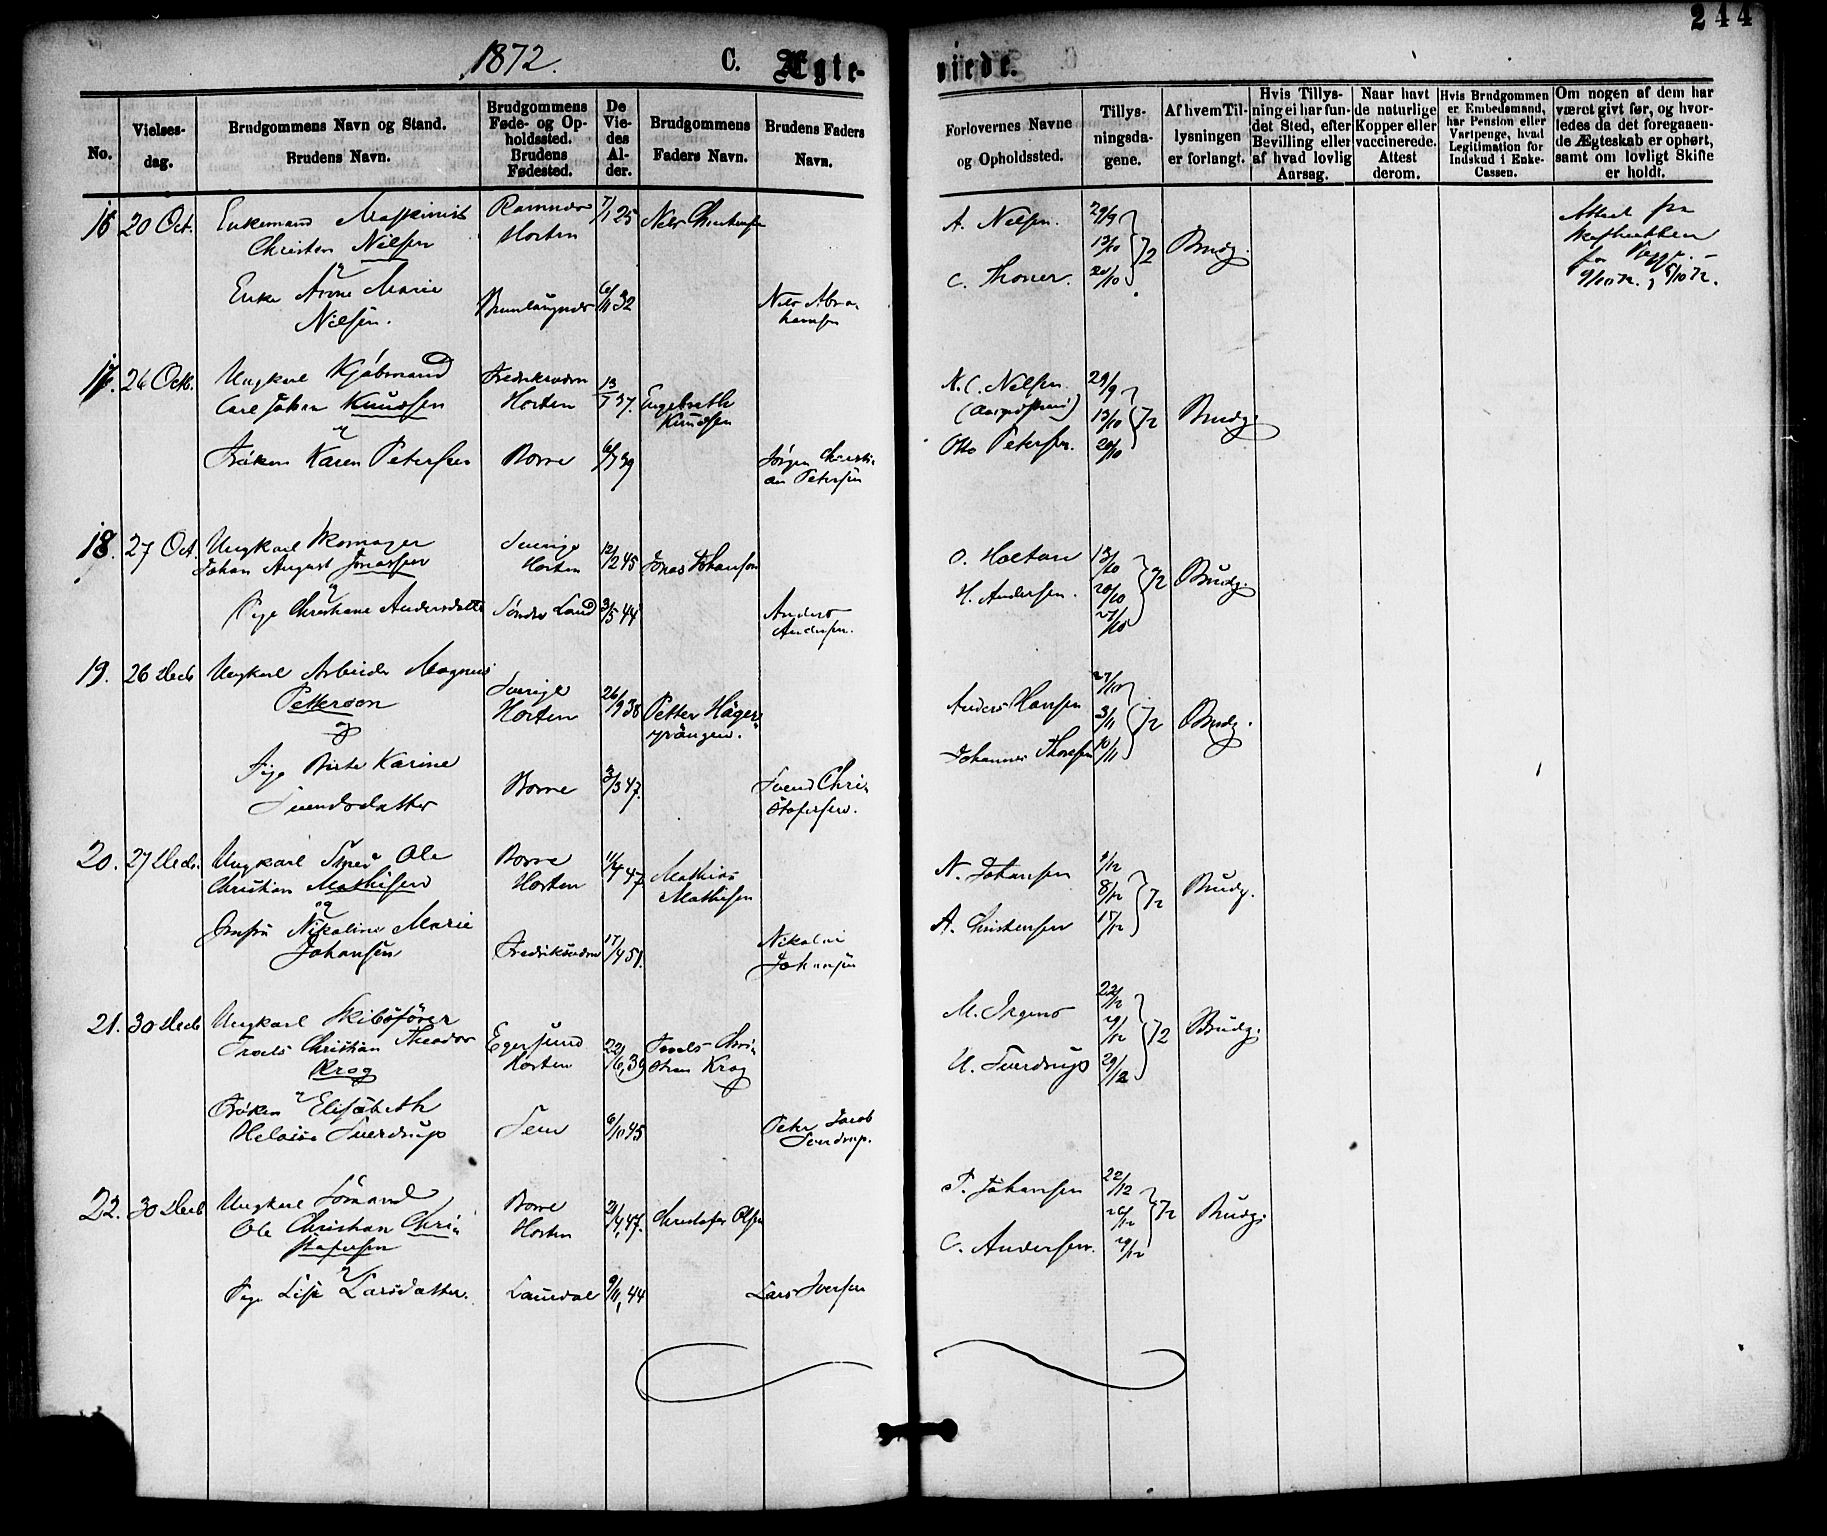 244
1872.
C. Ægteviede.
No.
Vielsesdag.
Brudgommens Navn og Stand.
Brudens Navn.
Brudgommens Føde- og Opholdssted.
Brudens Fødested.
De Viedes Alder.
Brudgommens Faders Navn.
Brudens Faders Navn.
Forlovernes Navne og Opholdssted.
Tillysningsdagene.
Af hvem Tillysningen er forlangt.
Hvis Tillysning ei har fundet Sted, efter Bevilling eller af hvad lovlig Aarsag.
Naar havt de naturlige Kopper eller vaccinerede. Attest derom.
Hvis Brudgommen er Embedsmand, har Pension eller Vartpenge, hvad Legitimation for Indskud i Enke-Cassen.
Om nogen af dem har været givt før, og hvorledes da det foregaaende Ægteskab er ophørt, samt om lovligt Skifte er holdt.
16 20 Oct. Enkemand Maskinist
Christen Nilsen
Ramnæs
Horten
7/1 25
Niels Christensen
A. Nilsen.
C. Thoner.
29/9
13/10
20/10
72
Brudg.
Attest fra
Skifteretten
for Begge
9/10 72, 5/10 72.
Enke Anne Marie
Nilsen.
Brunlaugnæs
6/11 32
Nils Abrahamsen
17. 26 Octb. Ungkarl Kjøbmand
Carl Johan Knudsen
Fredriksværn
Horten
13/7 37.
Engebreth
Knudsen
N. C. Nilsen
Otto Petersen.
29/9
13/10
20/10
72
Brudg.
Frøken Karen Petersen
Borre
6/7 39
Jørgen Christian Petersen
18. 27 Oct. Ungkarl Skomager
Johan August Jonassen
Sverige
Horten
12/12 45
Jonas Johanson
O. Holtan
H. Andersen.
13/10
20/10
27/10
72
Brudg.
Pige Christiane Andersdatter
Søndre Land
3/5 44
Anders
Andersen.
19. 26 Decb Ungkarl Arbeider Magnus
Petterson
Sverige
Horten
26/9 38
Petter Häger
Anders Hansen
Johannes Thoresen
27/10
3/11
10/11
72
Brudg.
Pige Birte Karine
Svendsdatter
Borre
3/3 47.
Svend Christofersen.
20. 27 Decb. Ungkarl Smed Ole
Christian Mathisen
Borre
Horten
11/4 47.
Mathias
Mathisen
N. Johansen
A. Christensen
1/12
8/12
15/12
72
Brudg.
Jomfru Nikoline Marie
Johansen
Fredriksværn
17/4 51.
Nikolai
Johansen
21. 30 Decb Ungkarl Skibsfører
Troels Christian Theodor
Krog
Egersund
Horten
22/6, 39
Troels Christian Krog
M. Irgens
U. Sverdrup
22/12
29/12
72
Brudg.
Frøken Elisabeth
Heloise Sverdrup
Sem
6/10 45
Peter Jacob
Sverdrup.
22. 30 Decb Ungkarl Sømand
Ole Christian Christofersen
Borre
Horten
2/4, 47.
Christofer Olsen
T. Johansen
C. Andersen.
22/12
26/12
29/12
72
Brudg.
Pige Lise Larsdatter.
Laurdal
9/11, 44
Lars Iversen